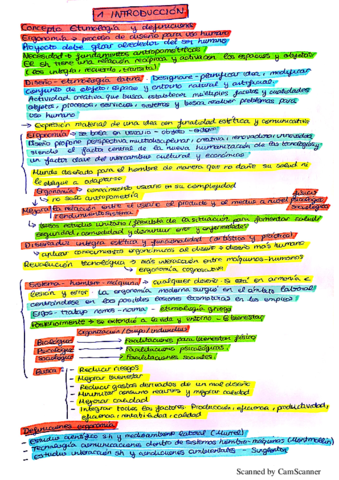 1. INTRODUCCIÓN
Concepto Etimología y definiciones
Ergonomía → proceso de diseño para uso humano
Proyecto debe estar alrededor del ser humano
Necesidad → fundamentos antropométricos
El SH tiene una relación recíproca y activa con los espacios y objetos
(los integra, recuerda, transita)
Diseño - etimología latina - Designare - planificar idea, modificar
Conjunto de objeto, espacio y entorno natural y artificial
Actividad creativa que busca establecer múltiples facetas y cualidades
objetos, procesos, servicios, sistemas y busca resolver problemas para
uso humano
→ Expresión material de una idea con finalidad estética y comunicativa
Ergonomía → se basa en usuario - objeto - entorno
Diseño propone perspectiva multidisciplinar, creativa, innovadora
siendo el factor central de la nueva humanización de las tecnologías y
un factor clave del intercambio cultural y económico
Mundo diseñado para el hombre de manera que no dañe su salud ni
le obligue a adaptarse
Ergonomía → conocimiento usuario en su complejidad
no solo antropometría
física
Mejorar la relación entre el usuario el producto y el medio a nivel psicológica
sociológica
rendimiento sistema
busca estudio unitario / de la situación para fomentar salud
seguridad, comodidad y disminuir error y enfermedades
Diseñador integra estética y funcionalidad (artística y práctica)
→ aplicar conocimientos ergonómicos al diseño → diseño más humano
Revolución tecnológica → más interacción entre máquinas-humanos
→ ergonomía cognoscitiva
Sistema - hombre - máquina → cualquier diseño si está en armonía
lesión y error. La ergonomía moderna surgió en el ámbito laboral
centrándose en las posibles lesiones
Ergos - trabajo nomos - norma - etimología griega
Posteriormente → se extendió a la vida y entorno - bienestar
Organización / Grupo / individual
Biológica → Posibilitaciones para bienestar físico
Psicológica → Posibilitaciones psicológicas
Sociológica → Posibilitaciones sociales
Busca
- Reducir riesgos
- Mejorar bienestar
- Reducir gastos derivados de un mal diseño
- Minimizar consumo recursos y mejorar calidad
- Mejorar calidad
- Integrar todos los factores: Producción, eficiencia, productividad,
eficiencia, rentabilidad y calidad
Definiciones ergonomía
- Estudio científico SH y medioambiente laboral (Murrell)
- Tecnología comunicaciones dentro de sistemas hombre-máquina (Montmollin)
- Estudio interacción SH y condiciones ambientales - Singleton
Scanned by CamScanner